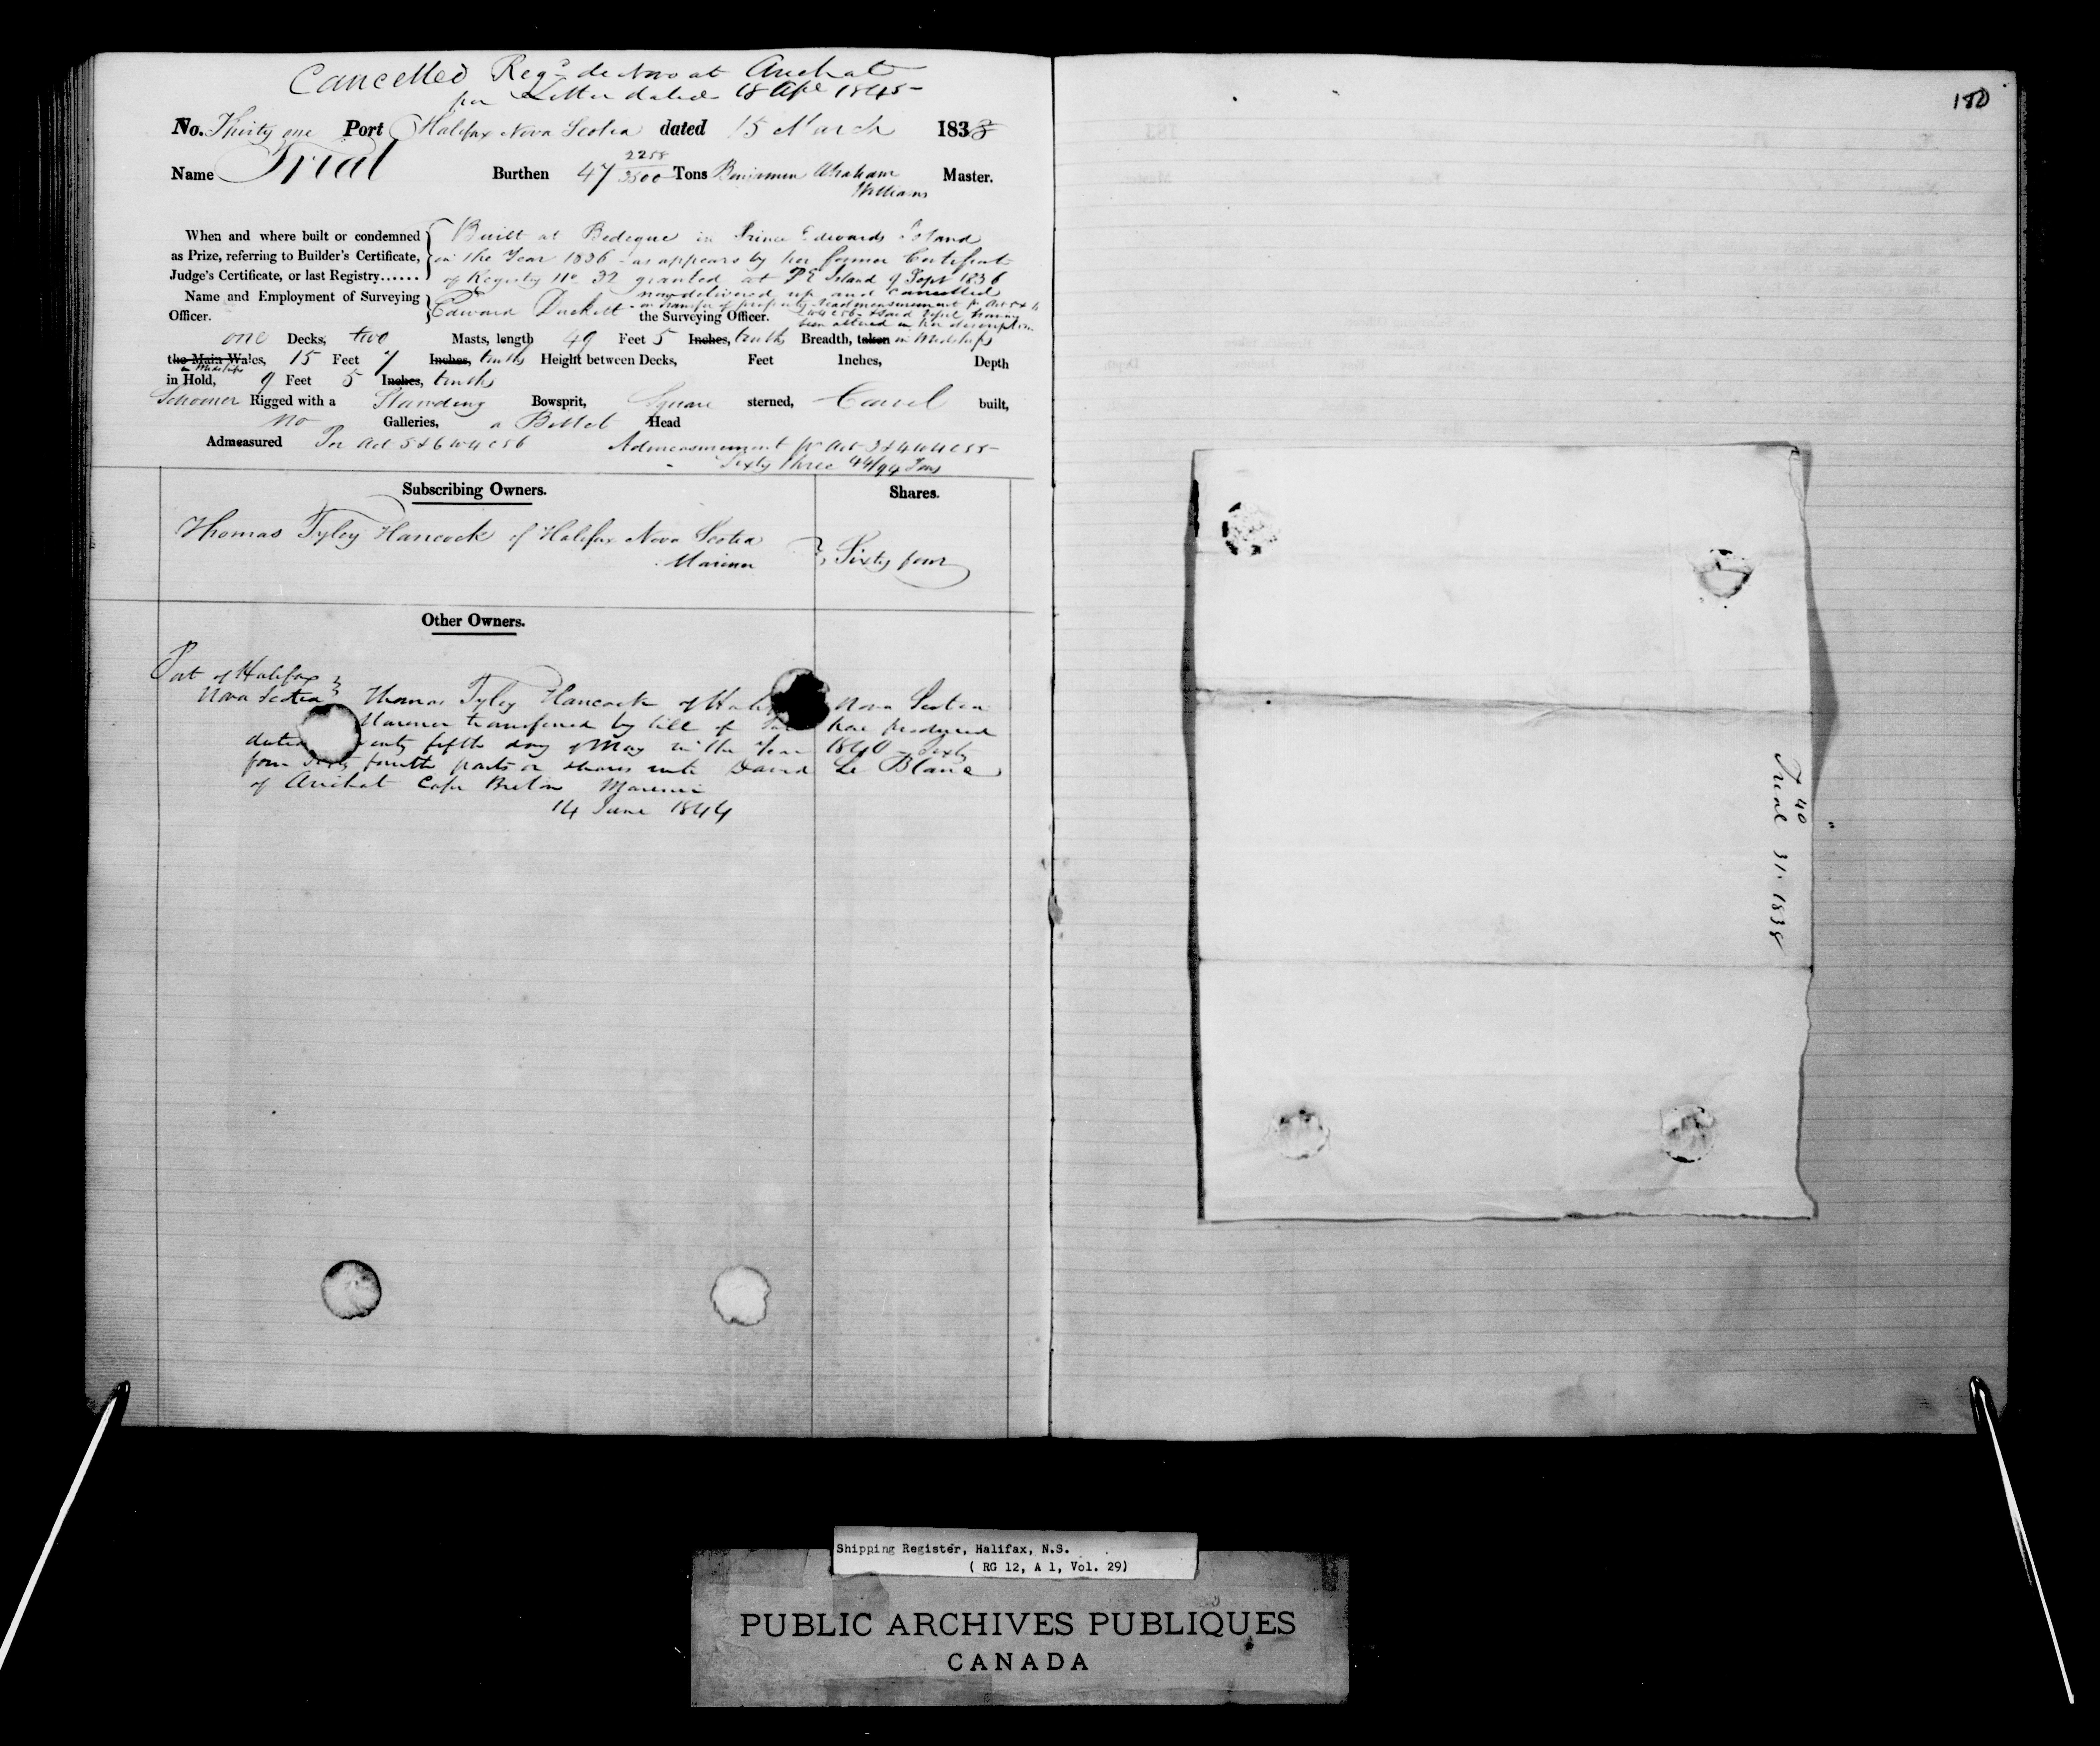 Cancelled Reg.d de Novo at Arichat
per Letter dated 18 Apl 1845
No. Thirty one Port Halifax Nova Scotia dated 15 March 1838
Name Trial Burthen 47 2258/3500 Tons Benjamin Abraham Williams Master.
When and where built or condemned as Prize, referring to Builder's Certificate, Judge's Certificate, or last Registry......
Built at Bedeque in Prince Edwards Island
in the Year 1836 as appears by her former Certificate
of Registry No 32 granted at P E Island 9 Sept 1836
now delivered up and cancelled
on transfer of property & readmeasurement
been altered in her description
Name and Employment of Surveying Officer.
Edward Duckett the Surveying Officer.
one Decks, two Masts, length 49 Feet 5 Inches, tenths Breadth, taken in Midships
the Main Wales, 15 Feet 7 Inches, tenths Height between Decks, Feet Inches, Depth
in Midships
in Hold, 9 Feet 5 Inches, tenths
Schooner Rigged with a Standing Bowsprit, Square sterned, Carvel built,
no Galleries, a Billet Head
Admeasured Per Act 5 & 6 W 4 C 56 Admeasurement pr Act 3 & 4 W 4 C 55
Sixty three 44/94 Tons
Subscribing Owners. Shares.
Thomas Tyley Hancock of Halifax Nova Scotia
Mariner } Sixty four
Other Owners.
Port of Halifax
Nova Scotia } Thomas Tyley Hancock of Nova Scotia
Mariner transferred by bill of have produced
dated fifth day of May in the Year 1840 - Sixty
four Sixty fourth parts or shares unto David Le Blanc
of Arichat Cape Breton Mariner
14 June 1844
180
T 40
Trial 31. 1838
Shipping Register, Halifax, N.S.
( RG 12, A 1, Vol. 29)
PUBLIC ARCHIVES PUBLIQUES
CANADA